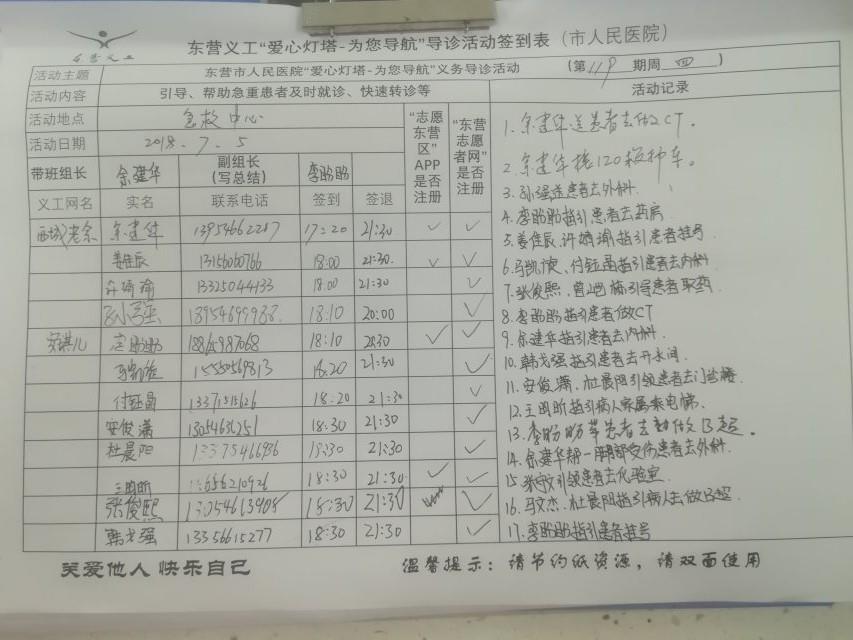 东营义工
东营义工“爱心灯塔-为您导航”导诊活动签到表（市人民医院）
活动主题 东营市人民医院“爱心灯塔-为您导航”义务导诊活动 （第119期周四）
活动内容 引导、帮助急重患者及时就诊、快速转诊等 活动记录
活动地点 急救中心 “志愿东营区”APP是否注册 “东营志愿者网”是否注册
活动日期 2018.7.5
带班组长 余建华 副组长（写总结） 李盼盼
义工网名 实名 联系电话 签到 签退
西城老余 余建华 17:20 21:30 ✓ ✓
姜佳辰 13156060766 18:00 21:30. ✓ ✓
许婧瑜 13325044133 18:00 21:30 ✓
孙强 18:10 20:00 ✓
李盼盼 18:10 20:30 ✓ ✓
18:20 21:30 ✓
付钰晶 18:20 21:30 ✓
安俊潇 18:30 21:30 ✓
杜晨阳 18:30 21:30 ✓
王明昕 18:30 21:30 ✓ ✓
张俊熙 18:30 21:30 ✓
韩戈强 13356615277 18:30 21:30 ✓
1. 余建华送患者去做CT.
2. 余建华接120救护车.
3. 孙强送患者去外科.
4. 李盼盼指引患者去药房
5. 姜佳辰、许婧瑜指引患者挂号
6. 马凯 、付钰晶指引患者去内科
7. 张俊熙、 引导患者取药
8. 李盼盼指引患者做CT
9. 余建华指引患者去内科.
10. 韩戈强指引患者去开水间.
11. 安俊潇、杜晨阳引领患者去门诊楼
12. 王明昕指引病人家属乘电梯.
13. 李盼盼带患者去 做B超.
14. 余建华帮一 部受伤患者去外科.
15. 引领患者去化验室.
16. 马文杰、杜晨阳指引病人去做B超.
17. 李盼盼指引患者挂号
关爱他人 快乐自己
温馨提示：请节约纸资源，请双面使用